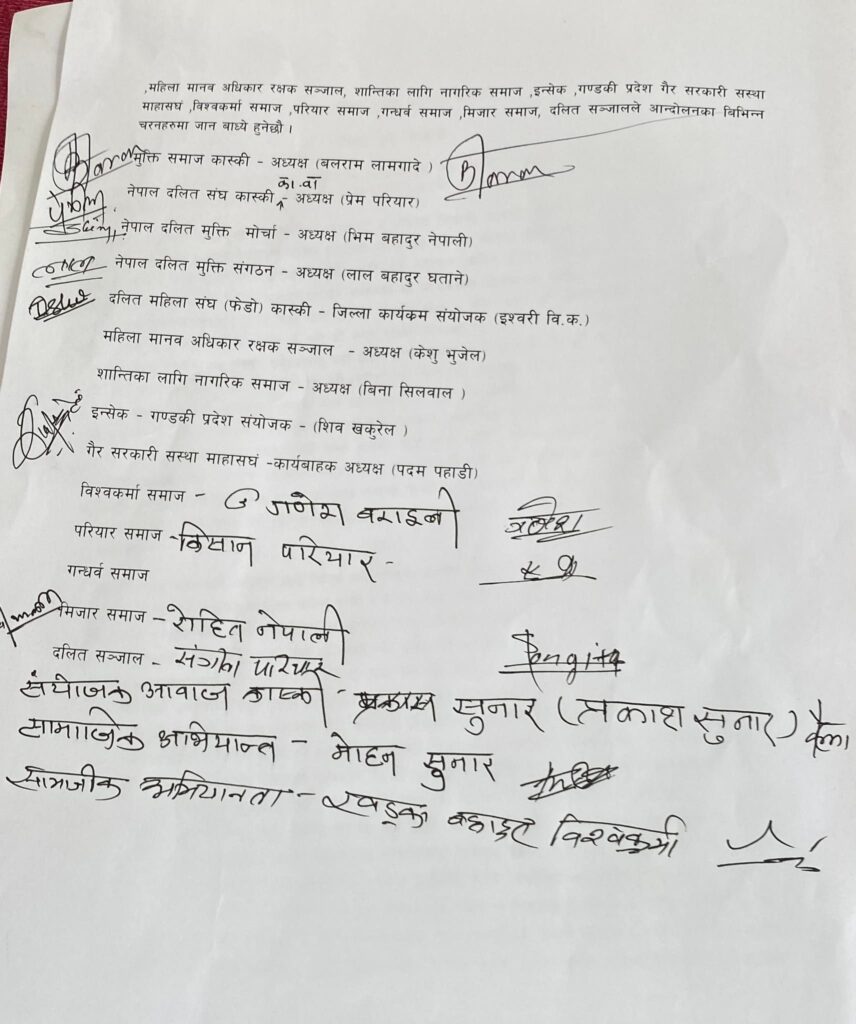 ,महिला मानव अधिकार रक्षक सञ्जाल, शान्तिका लागि नागरिक समाज ,इन्सेक ,गण्डकी प्रदेश गैर सरकारी सस्था
माहासघं ,विश्वकर्मा समाज ,परियार समाज ,गन्धर्व समाज ,मिजार समाज, दलित सञ्जालले आन्दोलनका बिभिन्न
चरनहरुमा जान बाध्ये हुनेछौ ।
मुक्ति समाज कास्की - अध्यक्ष (बलराम लामगादे )
का.वा
नेपाल दलित संघ कास्की - अध्यक्ष (प्रेम परियार)
नेपाल दलित मुक्ति मोर्चा - अध्यक्ष (भिम बहादुर नेपाली)
नेपाल दलित मुक्ति संगठन - अध्यक्ष (लाल बहादुर घताने)
दलित महिला संघ (फेडो) कास्की - जिल्ला कार्यकम संयोजक (इश्वरी वि.क.)
महिला मानव अधिकार रक्षक सञ्जाल - अध्यक्ष (केशु भुजेल)
शान्तिका लागि नागरिक समाज - अध्यक्ष (बिना सिलवाल )
इन्सेक - गण्डकी प्रदेश संयोजक - (शिव खकुरेल )
गैर सरकारी सस्था माहासघं -कार्यबाहक अध्यक्ष (पदम पहाडी)
विश्वकर्मा समाज - गणेश बराइली
परियार समाज - किसान परियार -
गन्धर्व समाज
मिजार समाज - रोहित नेपाली
दलित सञ्जाल - संगिता परियार Sangita
संयोजक आवाज कास्की - सुनार (प्रकाश सुनार)
सामाजिक अभियान्त - मोहन सुनार
सामजीक अभियानता - खड्क बहादुर विश्वकर्मा